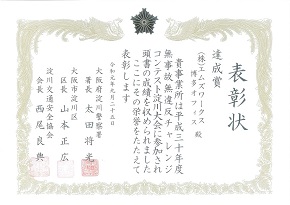 表彰状
達成賞
(株)エムズワークス
博多オフィス 殿
貴事業所は平成三十年度
無事故無違反チャレンジ
コンテスト淀川大会に参加され
頭書の成績を収められました
ここにその栄誉をたたえて
表彰します
令和元年九月二十五日
大阪府淀川警察署
署長 太田将光
大阪市淀川区
区長 山本正広
淀川交通安全協会
会長 西尾良興